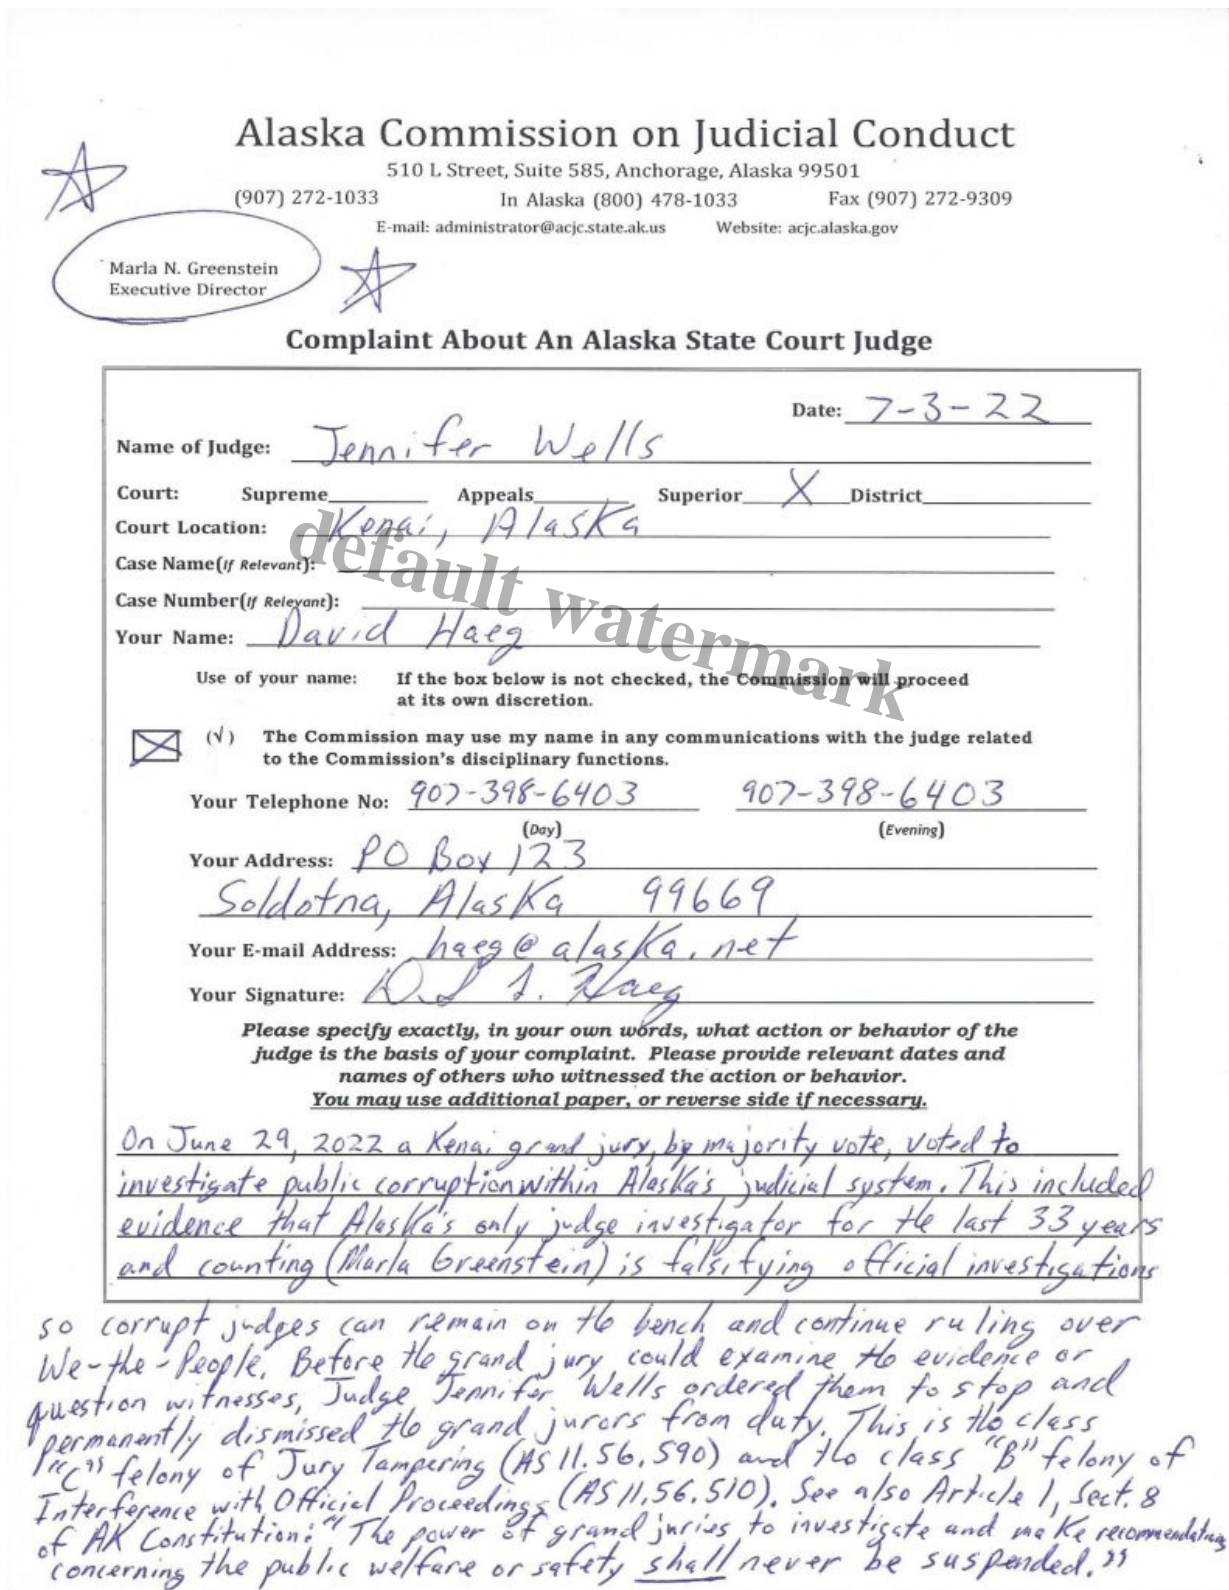 Alaska Commission on Judicial Conduct
510 L Street, Suite 585, Anchorage, Alaska 99501
(907) 272-1033 In Alaska (800) 478-1033 Fax (907) 272-9309
E-mail: administrator@acjc.state.ak.us Website: acjc.alaska.gov
Marla N. Greenstein
Executive Director
Complaint About An Alaska State Court Judge
Date: 7-3-22
Name of Judge: Jennifer Wells
Court: Supreme Appeals Superior X District
Court Location: Kenai, Alaska
Case Name(If Relevant):
Case Number(If Relevant):
default watermark
Your Name: David Haeg
Use of your name: If the box below is not checked, the Commission will proceed
at its own discretion.
(√) The Commission may use my name in any communications with the judge related
to the Commission's disciplinary functions.
Your Telephone No: 907-398-6403 907-398-6403
(Day) (Evening)
Your Address: PO Box 123
Soldotna, Alaska 99669
Your E-mail Address: haeg@alaska.net
Your Signature: Haeg
Please specify exactly, in your own words, what action or behavior of the
judge is the basis of your complaint. Please provide relevant dates and
names of others who witnessed the action or behavior.
You may use additional paper, or reverse side if necessary.
On June 29, 2022 a Kenai grand jury, by majority vote, voted to
investigate public corruption within Alaska's judicial system. This included
evidence that Alaska's only judge investigator for the last 33 years
and counting (Marla Greenstein) is falsifying official investigations
so corrupt judges can remain on the bench and continue ruling over
We-the-People. Before the grand jury could examine the evidence or
question witnesses, Judge Jennifer Wells ordered them to stop and
permanently dismissed the grand jurors from duty. This is the class
"C" felony of Jury Tampering (AS 11.56.590) and the class "B" felony of
Interference with Official Proceedings (AS 11.56.510). See also Article 1, Sect. 8
of AK Constitution: "The power of grand juries to investigate and make recommendations
concerning the public welfare or safety shall never be suspended."